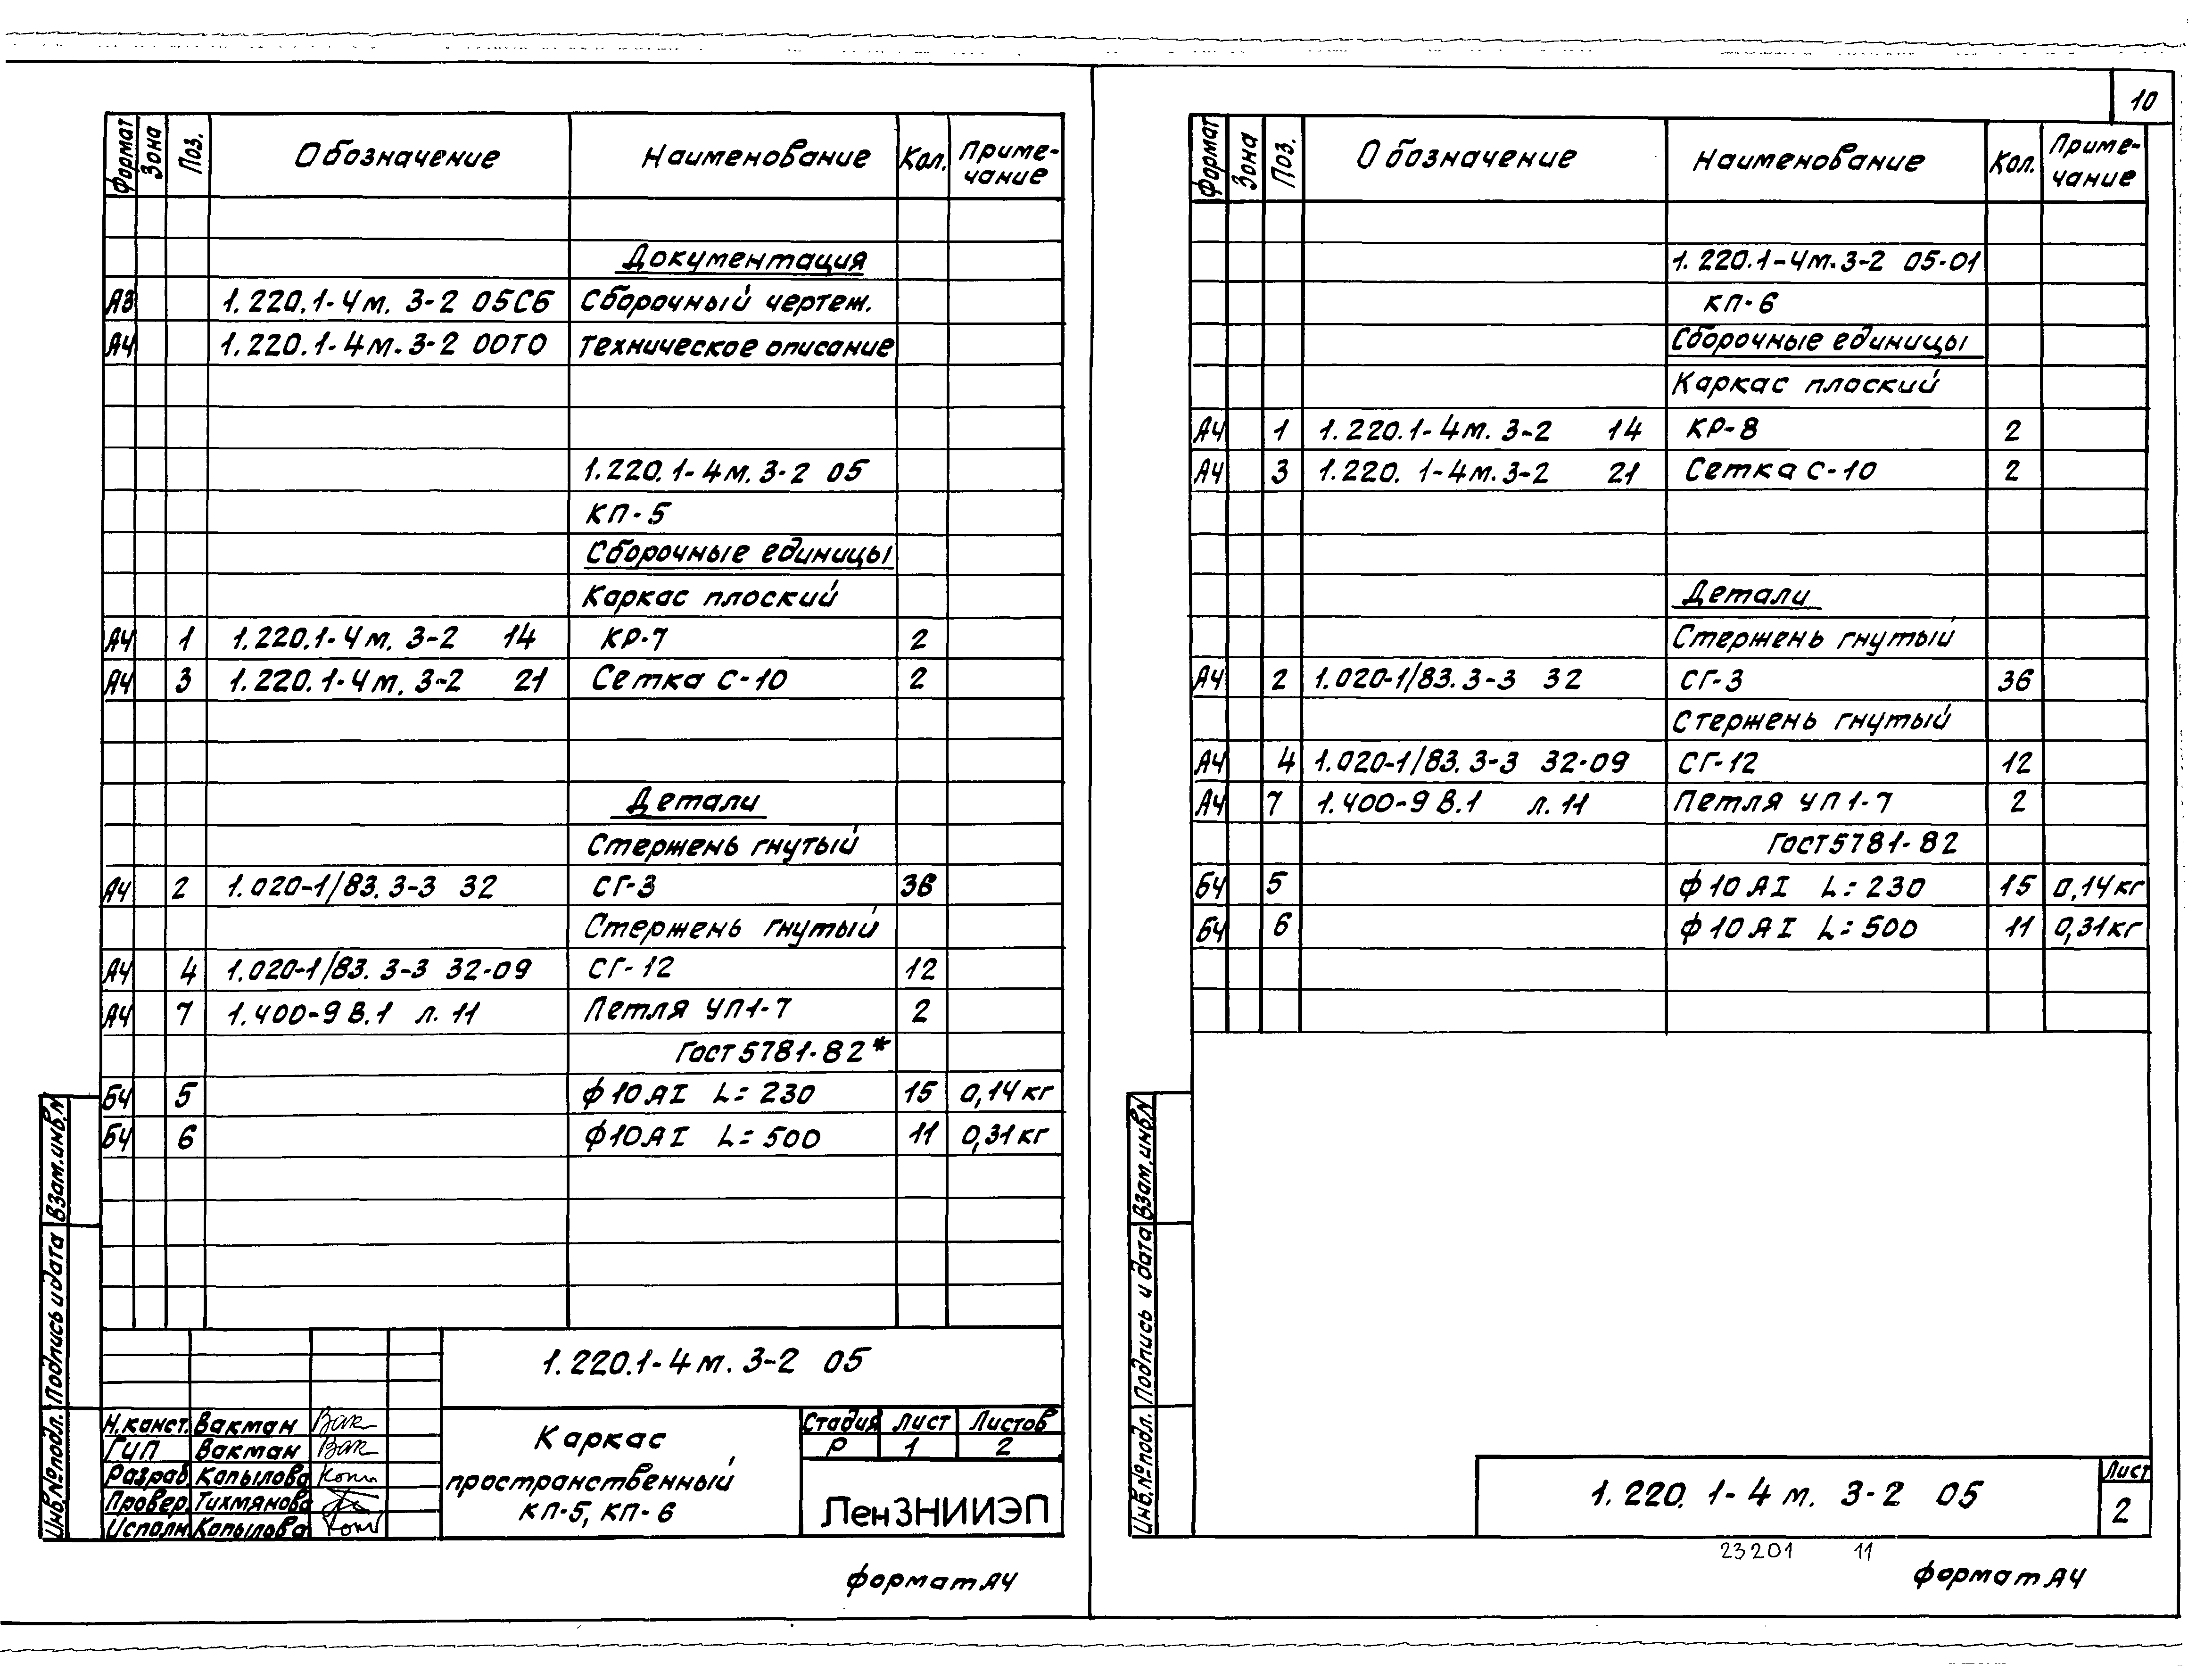 10
Формат Зона Поз. Обозначение Наименование Кол. Приме-
чание
Документация
А3 1.220.1-4м. 3-2 05СБ Сборочный чертеж.
А4 1.220.1-4м. 3-2 00ТО Техническое описание
1.220.1-4м. 3-2 05
КП-5
Сборочные единицы
Каркас плоский
А4 1 1.220.1-4м. 3-2 14 КР-7 2
А4 3 1.220.1-4м. 3-2 21 Сетка С-10 2
Детали
Стержень гнутый
А4 2 1.020-1/83. 3-3 32 СГ-3 36
Стержень гнутый
А4 4 1.020-1/83. 3-3 32-09 СГ-12 12
А4 7 1.400-9 В.1 л. 11 Петля УП1-7 2
Гост 5781-82*
БЧ 5 ф10АI L=230 15 0,14кг
БЧ 6 ф10АI L=500 11 0,31кг
Взам.инв.N
Подпись и дата
Инв.№подл.
1.220.1-4м. 3-2 05
Н.конст. Вакман Вак
ГИП Вакман Вак
Разраб Копылова Коп
Провер. Тихмянова
Исполн Копылова Коп
Каркас
пространственный
КП-5, КП-6
Стадия Лист Листов
Р 1 2
ЛенЗНИИЭП
формат А4
Формат Зона Поз. Обозначение Наименование Кол. Приме-
чание
1.220.1-4м. 3-2 05-01
КП-6
Сборочные единицы
Каркас плоский
А4 1 1.220.1-4м. 3-2 14 КР-8 2
А4 3 1.220.1-4м. 3-2 21 Сетка С-10 2
Детали
Стержень гнутый
А4 2 1.020-1/83. 3-3 32 СГ-3 36
Стержень гнутый
А4 4 1.020-1/83. 3-3 32-09 СГ-12 12
А4 7 1.400-9 В.1 л. 11 Петля УП1-7 2
Гост 5781-82
БЧ 5 ф10АI L=230 15 0,14кг
БЧ 6 ф10АI L=500 11 0,31кг
Взам.инв.N
Подпись и дата
Инв.№подл.
1.220.1-4м. 3-2 05
Лист
2
23201 11
формат А4